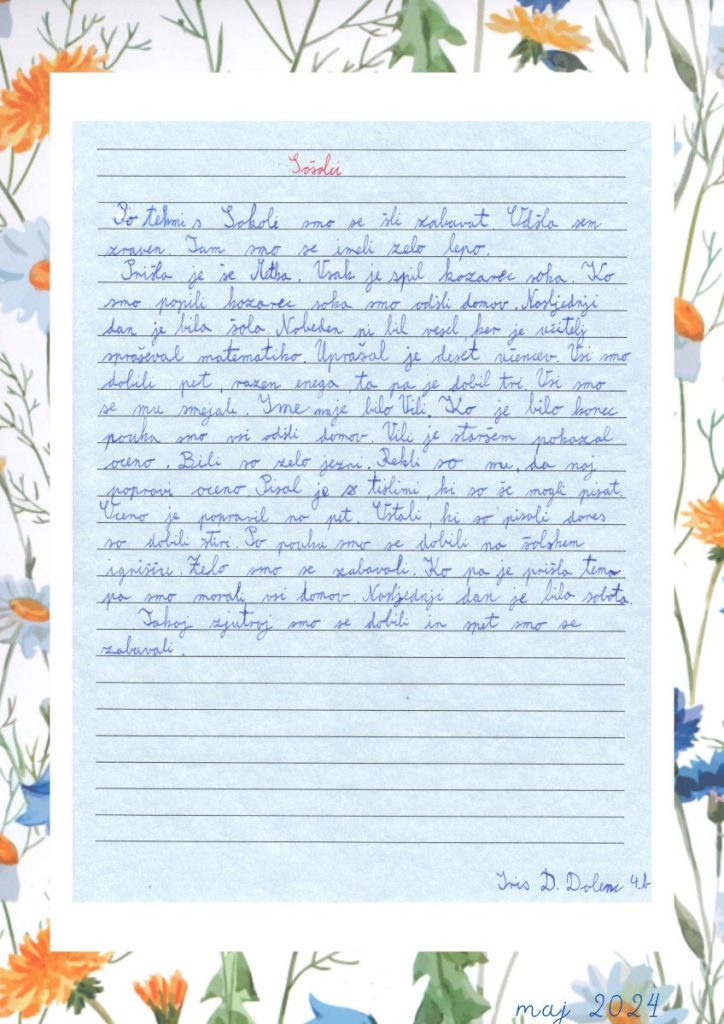 Sošolci
Po tekmi s Sokoli smo se šli zabavat. Odšla sem
zraven. Tam smo se imeli zelo lepo.
Prišla je še Metka. Vsak je spil kozarec soka. Ko
smo popili kozarec soka smo odšli domov. Nasljednji
dan je bila šola. Nobeden ni bil vesel ker je učitelj
spraševal matematiko. Uprašal je deset učencev. Vsi smo
dobili pet, razen enega, ta pa je dobil tri. Vsi smo
se mu smejali. Ime mu je bilo Vili. Ko je bilo konec
pouka smo vsi odšli domov. Vili je staršem pokazal
oceno. Bili so zelo jezni. Rekli so mu, da naj
popravi oceno. Pisal je s tistimi, ki so še mogli pisat.
Oceno je popravil na pet. Ostali, ki so pisali danes
so dobili štiri. Po pouku smo se dobili na šolskem
igrišču. Zelo smo se zabavali. Ko pa je prišla tema
pa smo morali vsi domov. Nasljednji dan je bila sobota.
Takoj zjutraj smo se dobili in spet smo se
zabavali.
Iris D. Dolenc 4.b
maj 2024